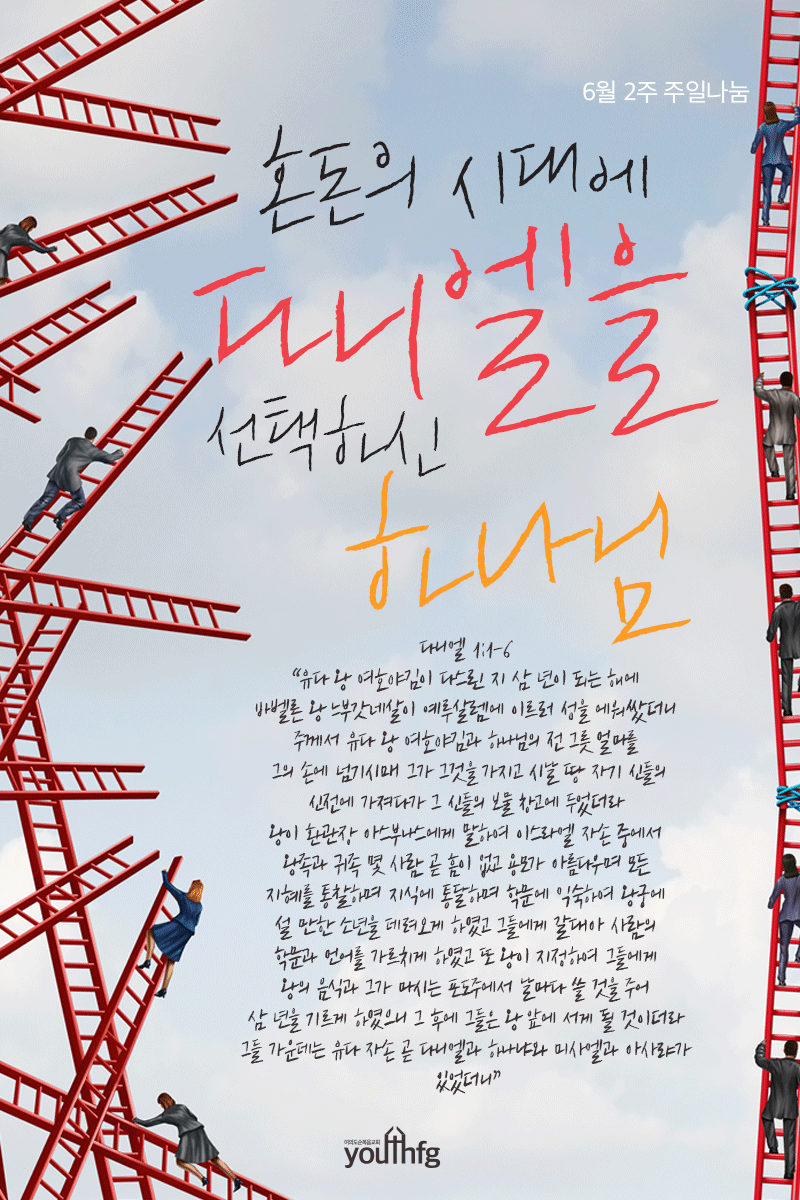 6월 2주 주일나눔
혼돈의 시대에
다니엘을
선택하신
하나님
다니엘 1:1-6
"유다 왕 여호야김이 다스린 지 삼 년이 되는 해에
바벨론 왕 느부갓네살이 예루살렘에 이르러 성을 에워쌌더니
주께서 유다 왕 여호야김과 하나님의 전 그릇 얼마를
그의 손에 넘기시매 그가 그것을 가지고 시날 땅 자기 신들의
신전에 가져다가 그 신들의 보물 창고에 두었더라
왕이 환관장 아스부나스에게 말하여 이스라엘 자손 중에서
왕족과 귀족 몇 사람 곧 흠이 없고 용모가 아름다우며 모든
지혜를 통찰하며 지식에 통달하며 학문에 익숙하여 왕궁에
설 만한 소년을 데려오게 하였고 그들에게 갈대아 사람의
학문과 언어를 가르치게 하였고 또 왕이 지정하여 그들에게
왕의 음식과 그가 마시는 포도주에서 날마다 쓸 것을 주어
삼 년을 기르게 하였으니 그 후에 그들은 왕 앞에 서게 될 것이더라
그들 가운데는 유다 자손 곧 다니엘과 하나냐와 미사엘과 아사랴가
있었더니"
여의도순복음교회
youthfg